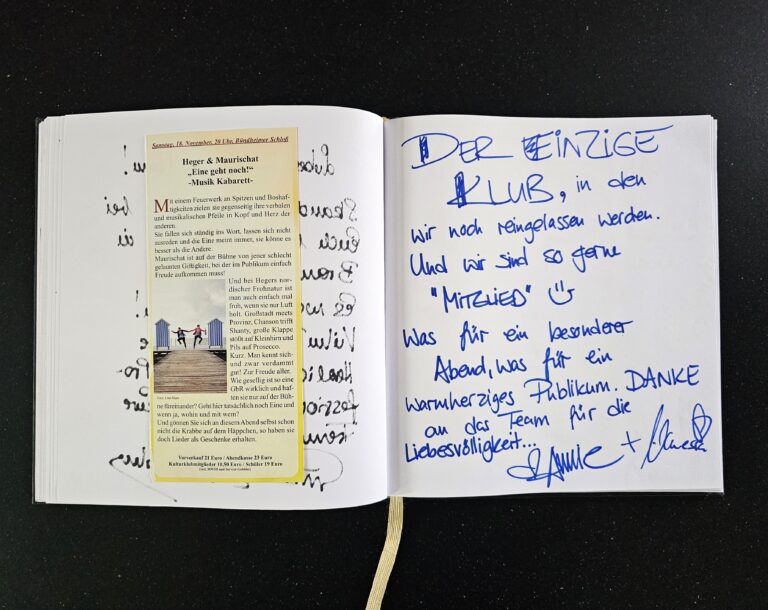 Samstag, 16. November, 20 Uhr, Bündheimer Schloß
Heger & Maurischat
„Eine geht noch!“
-Musik Kabarett-
Mit einem Feuerwerk an Spitzen und Boshaf-
tigkeiten zielen sie gegenseitig ihre verbalen
und musikalischen Pfeile in Kopf und Herz der
anderen.
Sie fallen sich ständig ins Wort, lassen sich nicht
ausreden und die Eine meint immer, sie könne es
besser als die Andere.
Maurischat ist auf der Bühne von jener schlecht
gelaunten Giftigkeit, bei der im Publikum einfach
Freude aufkommen muss!
Und bei Hegers nor-
discher Frohnatur ist
man auch einfach mal
froh, wenn sie nur Luft
holt. Großstadt meets
Provinz, Chanson trifft
Shanty, große Klappe
stößt auf Kleinhirn und
Pils auf Prosecco.
Kurz. Man kennt sich-
und zwar verdammt
gut! Zur Freude aller.
Wie gesellig ist so eine
GbR wirklich und haf-
ten sie nur auf der Büh-
ne füreinander? Geht hier tatsächlich noch Eine und
wenn ja, wohin und mit wem?
Und gönnen Sie sich an diesem Abend selbst schon
nicht die Krabbe auf dem Häppchen, so haben sie
doch Lieder als Geschenke erhalten.
Vorverkauf 21 Euro / Abendkasse 23 Euro
Kulturklubmitglieder 18,50 Euro / Schüler 19 Euro
DER EINZIGE
KLUB, in den
wir noch reingelassen werden.
Und wir sind so gerne
"MITGLIED"
Was für ein besonderer
Abend, was für ein
warmherziges Publikum. DANKE
an das Team für die
Liebesvölligkeit...